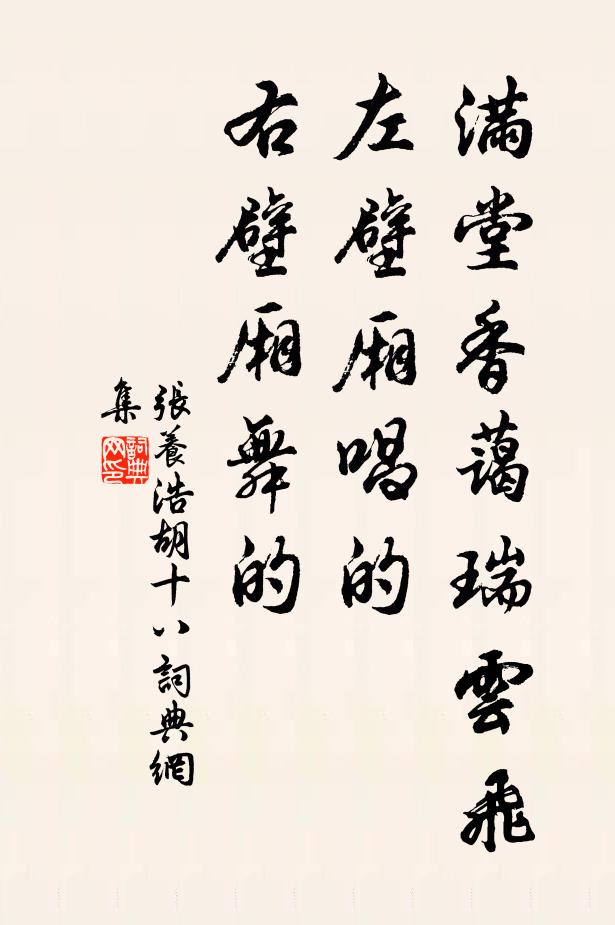 滿堂香藹瑞雲飛
左壁廂唱的
右壁廂舞的
張養浩胡十八詞典網
集
詞典
网印